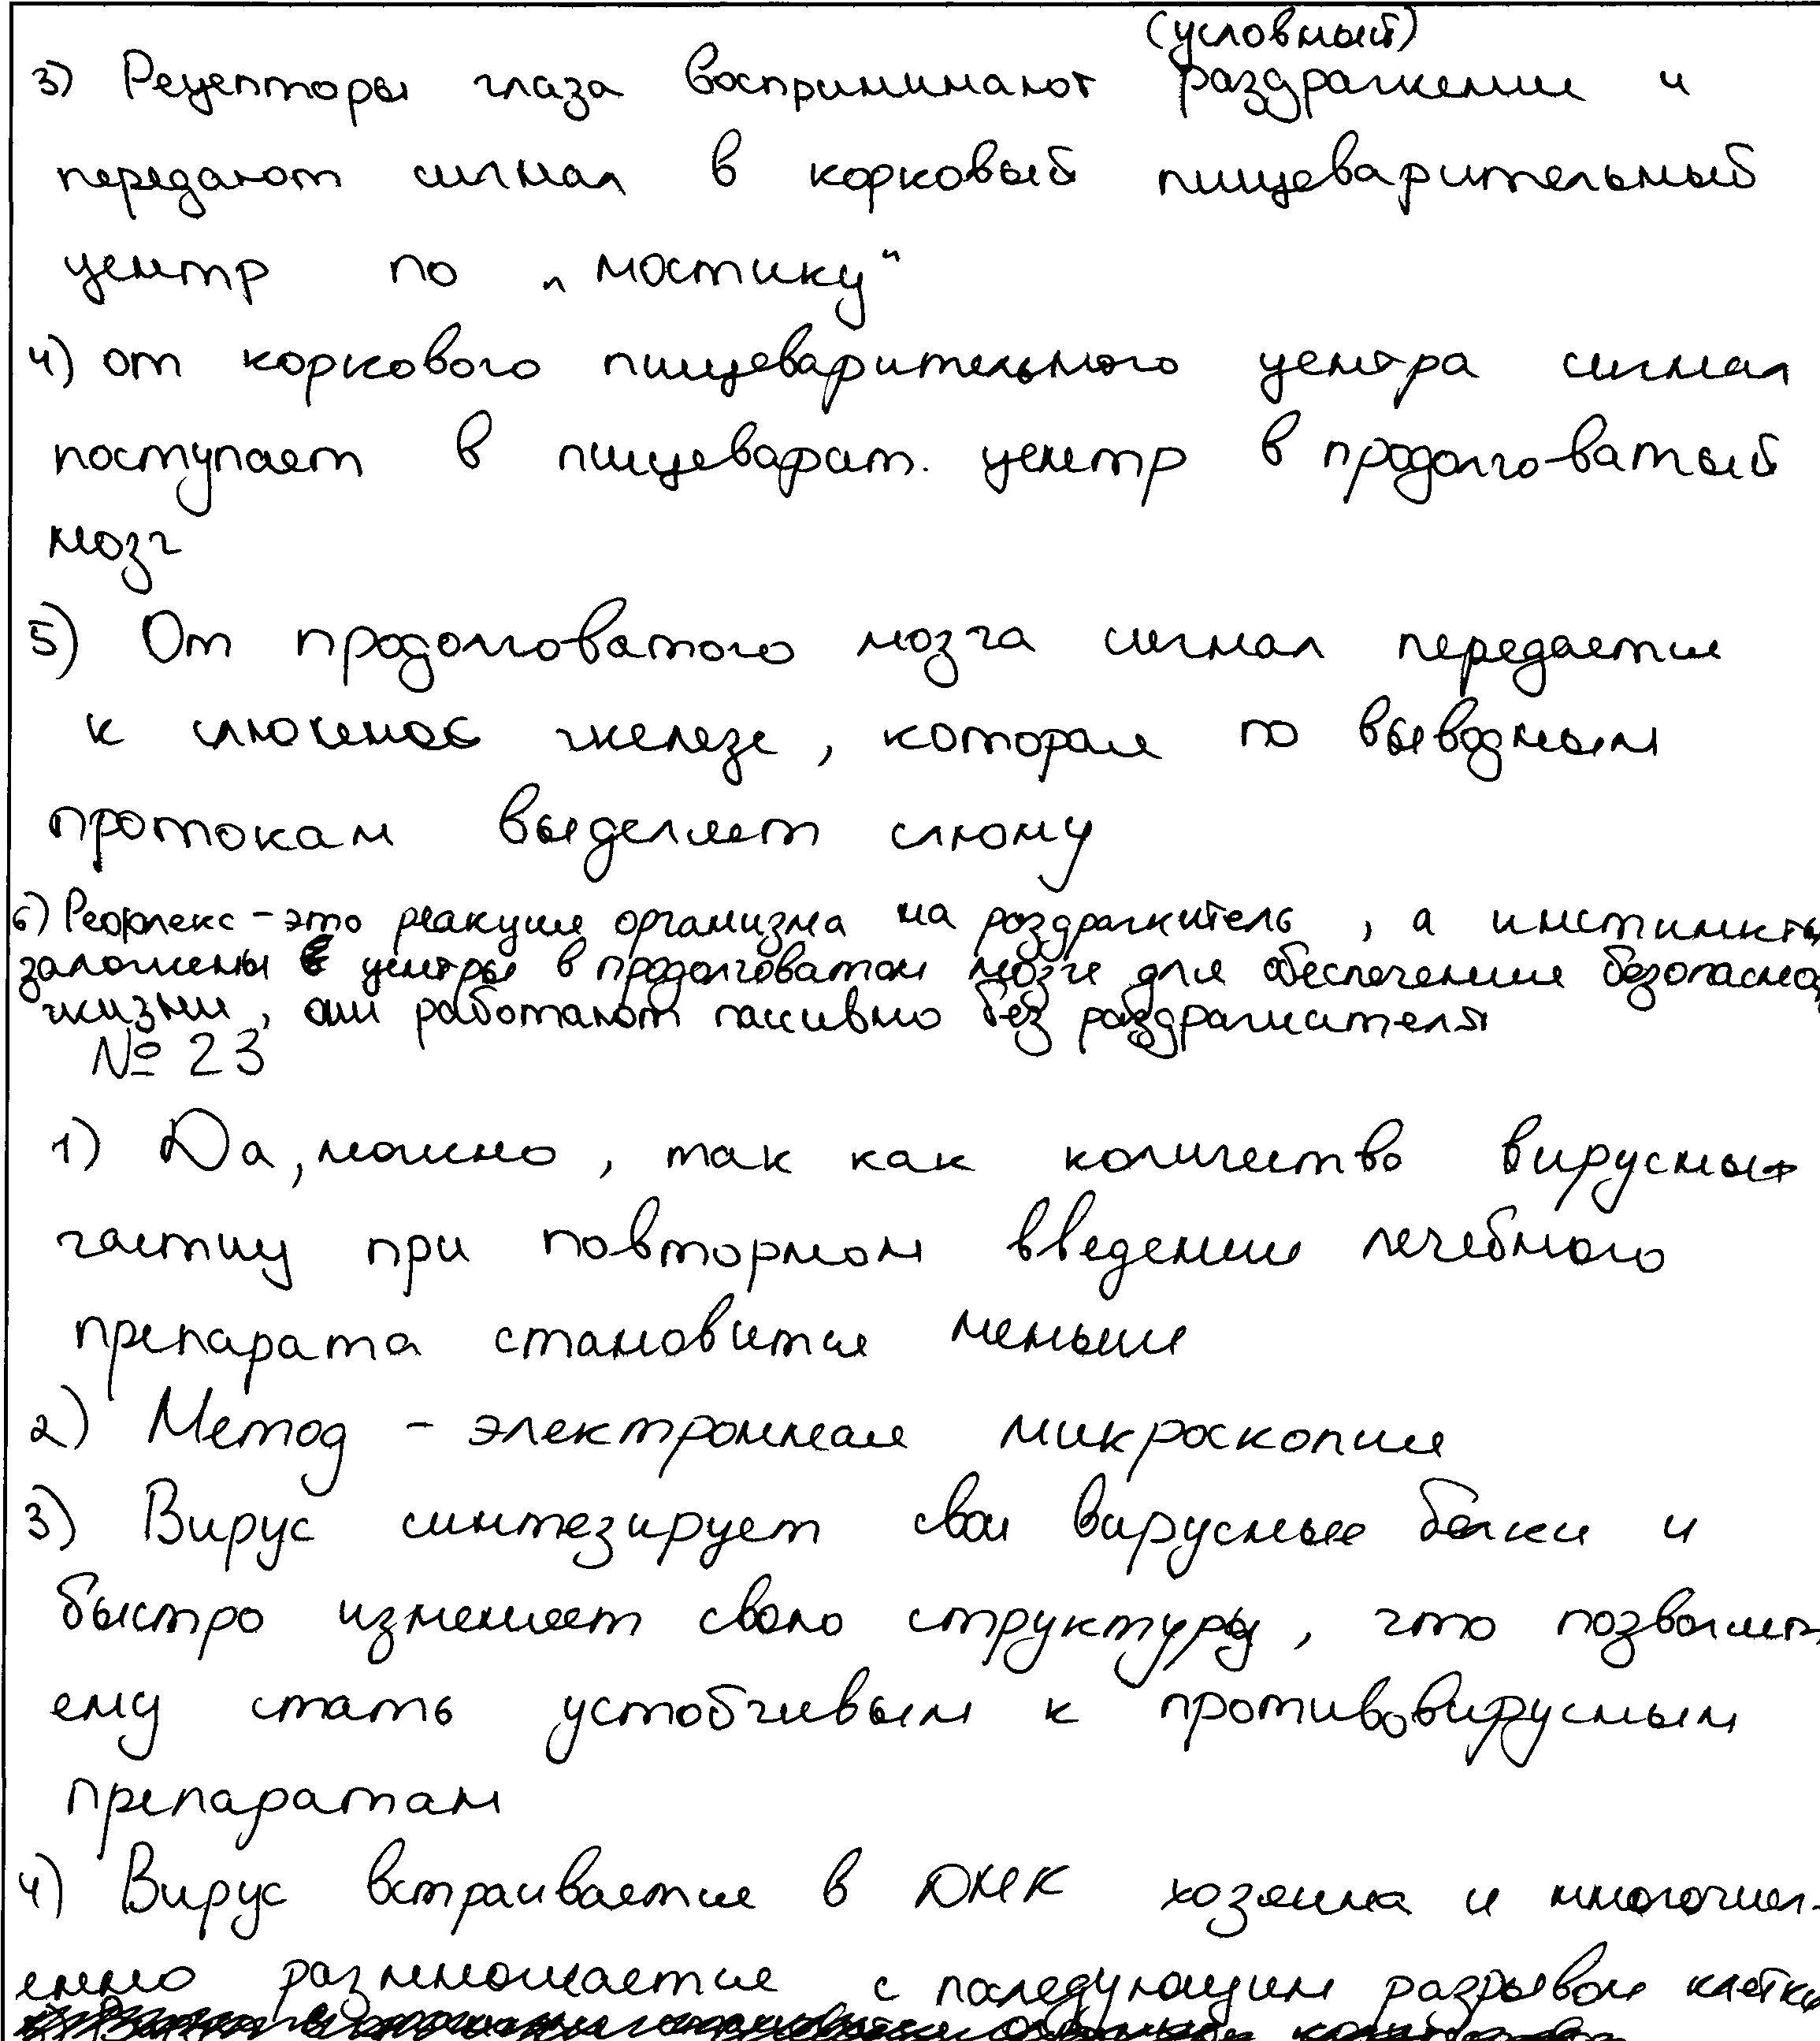 (условный)
3) Рецепторы глаза воспринимают раздражение и
передают сигнал в корковый пищеварительный
центр по „мостику“
4) от коркового пищеварительного центра сигнал
поступает в пищеварит. центр в продолговатый
мозг
5) От продолговатого мозга сигнал передается
к слюнной железе, которая по выводным
протокам выделяет слюну
6) Рефлекс - это реакция организма на раздражитель, а инстинкты
заложены в центры в продолговатом мозге для обеспечения безопасной
жизни, они работают пассивно без раздражителя
№ 23
1) Да, можно, так как количество вирусных
частиц при повторном введении лечебного
препарата становится меньше
2) Метод - электронная микроскопия
3) Вирус синтезирует свои вирусные белки и
быстро изменяет свою структуру, что позволяет
ему стать устойчивым к противовирусным
препаратам
4) Вирус встраивается в ДНК хозяина и многочисл-
енно размножается с последующим разрывом клетки